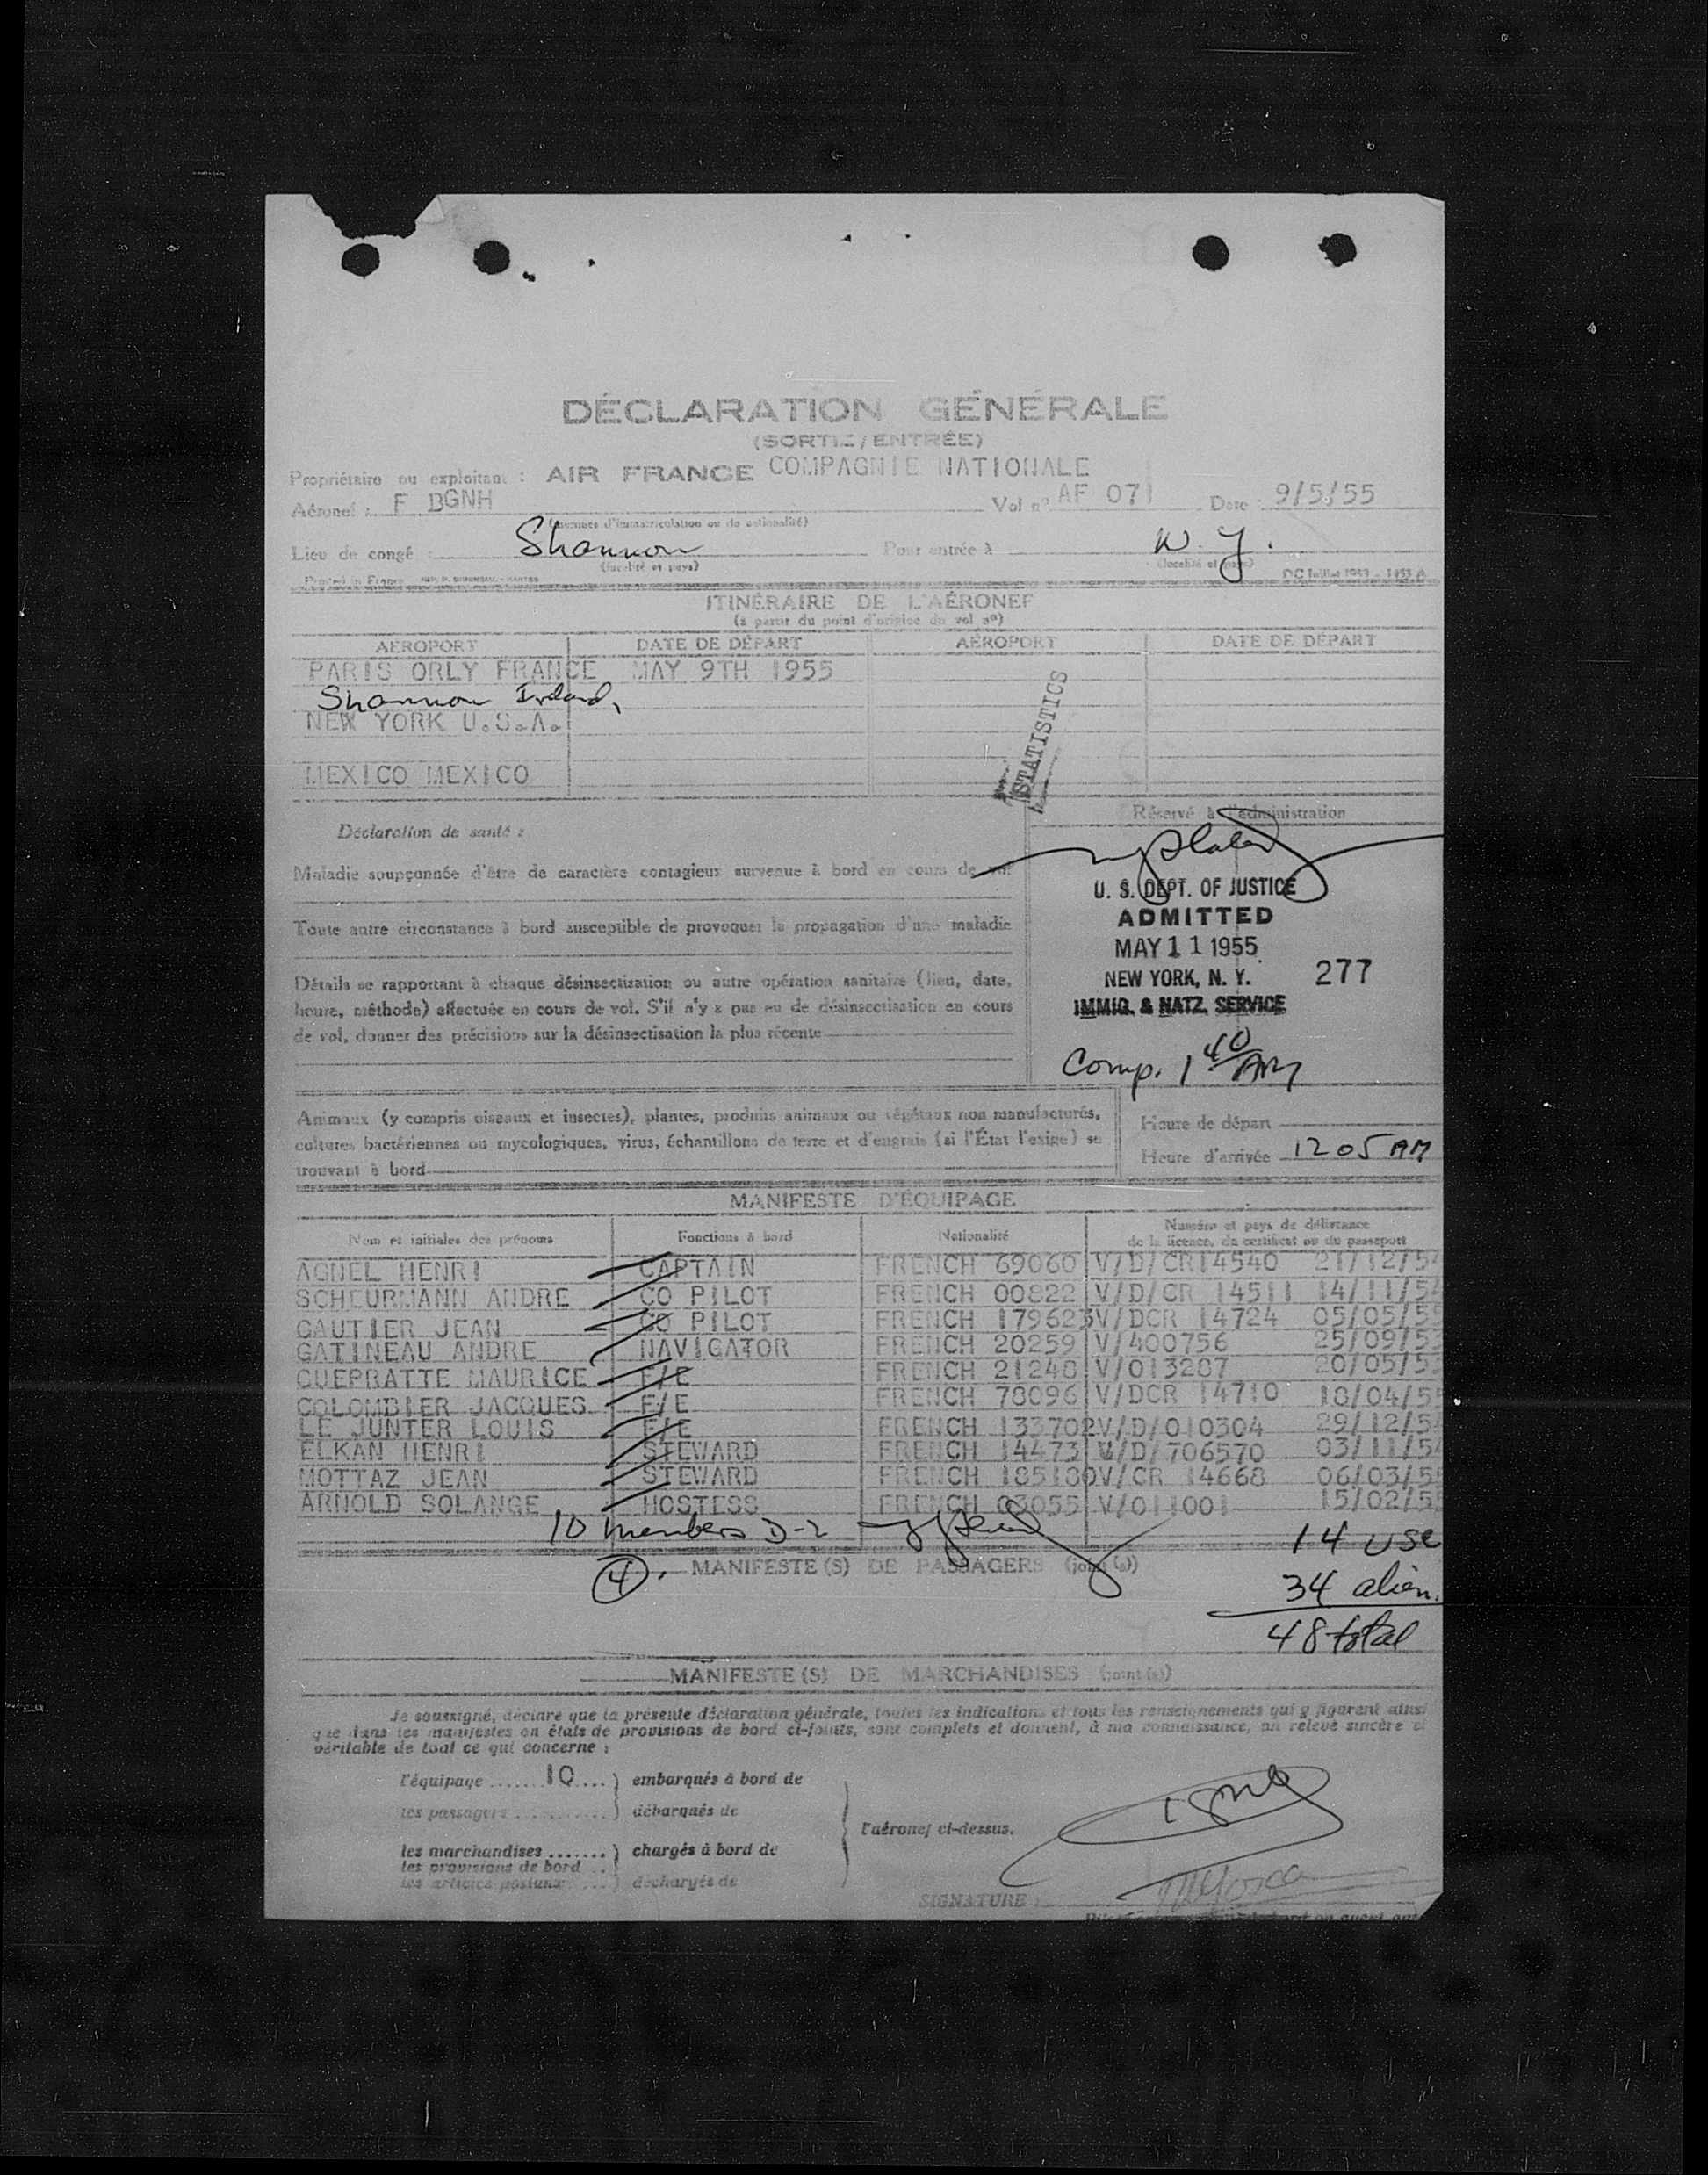 DÉCLARATION GÉNÉRALE
(SORTIE/ENTRÉE)
Propriétaire ou exploitant : AIR FRANCE COMPAGNIE NATIONALE
Aéronef : F BGNH Vol nº AF 071 Date : 9/5/55
(marques d'immatriculation ou de nationalité)
Lieu de congé : Shannon Pour entrée à N.Y.
(localité et pays) (localité et pays)
Printed in France
ITINÉRAIRE DE L'AÉRONEF
(à partir du point d'origine du vol nº)
AÉROPORT DATE DE DÉPART AÉROPORT DATE DE DÉPART
PARIS ORLY FRANCE MAY 9TH 1955
Shannon Ireland,
NEW YORK U.S.A.
MEXICO MEXICO
STATISTICS
Réservé à l'administration
Déclaration de santé :
Maladie soupçonnée d'être de caractère contagieux survenue à bord en cours de vol
Toute autre circonstance à bord susceptible de provoquer la propagation d'une maladie
Détails se rapportant à chaque désinsectisation ou autre opération sanitaire (lieu, date,
heure, méthode) effectuée en cours de vol. S'il n'y a pas eu de désinsectisation en cours
de vol, donner des précisions sur la désinsectisation la plus récente
U. S. DEPT. OF JUSTICE
ADMITTED
MAY 11 1955
NEW YORK, N. Y. 277
IMMIG. & NATZ. SERVICE
Comp. 1 40 AM
Animaux (y compris oiseaux et insectes), plantes, produits animaux ou végétaux non manufacturés,
cultures bactériennes ou mycologiques, virus, échantillons de terre et d'engrais (si l'État l'exige) se
trouvant à bord
Heure de départ
Heure d'arrivée 12 05 AM
MANIFESTE D'ÉQUIPAGE
Nom et initiales des prénoms Fonctions à bord Nationalité Numéro et pays de délivrance
de la licence, du certificat ou du passeport
AGNEL HENRI CAPTAIN FRENCH 69060 V/D/CR14540 21/12/54
SCHEURMANN ANDRE CO PILOT FRENCH 00822 V/D/CR 14511 14/11/54
GAUTIER JEAN CO PILOT FRENCH 179623 V/DCR 14724 05/05/55
GATINEAU ANDRE NAVIGATOR FRENCH 20259 V/400756 25/09/53
GUEPRATTE MAURICE F/E FRENCH 21248 V/013287 20/05/5
COLOMBIER JACQUES F/E FRENCH 78096 V/DCR 14710 18/04/55
LE JUNTER LOUIS F/E FRENCH 133702 V/D/010304 29/12/5
ELKAN HENRI STEWARD FRENCH 14473 V/D/706570 03/11/54
MOTTAZ JEAN STEWARD FRENCH 185180 V/CR 14668 06/03/55
ARNOLD SOLANGE HOSTESS FRENCH 03055 V/011001 15/02/55
10 members D-2
14 USC
4. MANIFESTE(S) DE PASSAGERS (joint(s))
34 alien.
48 total
MANIFESTE(S) DE MARCHANDISES (joint(s))
Je soussigné, déclare que la présente déclaration générale, toutes les indications et tous les renseignements qui y figurent ainsi
que dans les manifestes ou états de provisions de bord ci-joints, sont complets et donnent, à ma connaissance, un relevé sincère et
véritable de tout ce qui concerne :
l'équipage ....... 10 .... ) embarqués à bord de
les passagers ............ ) débarqués de
l'aéronef ci-dessus.
les marchandises ....... ) chargés à bord de
les provisions de bord ...
les articles postaux ..... ) déchargés de
SIGNATURE :